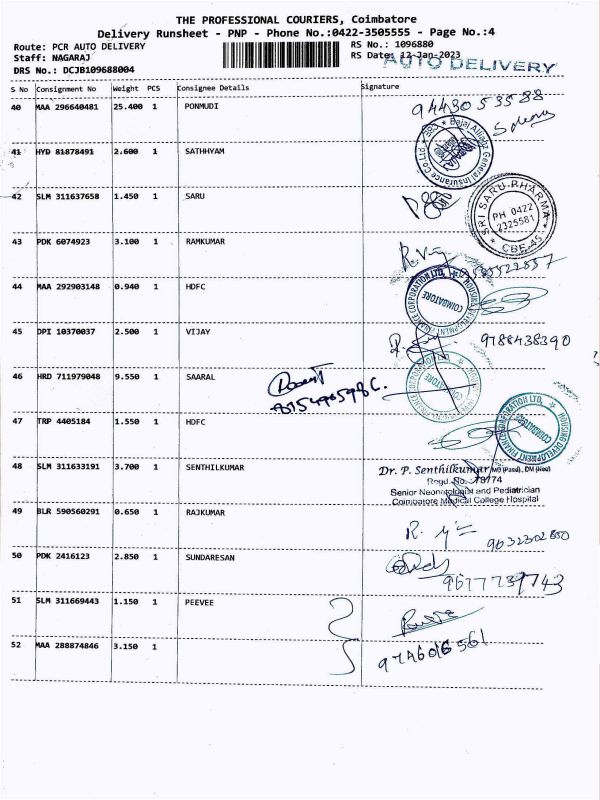 THE PROFESSIONAL COURIERS, Coimbatore
Delivery Runsheet - PNP - Phone No.:0422-3505555 - Page No.:4
Route: PCR AUTO DELIVERY RS No.: 1096880
Staff: NAGARAJ RS Date: 12-Jan-2023
AUTO DELIVERY
DRS No.: DCJB109688004
S No Consignment No Weight PCS Consignee Details Signature
40 MAA 296640481 25.400 1 PONMUDI
9443053588
41 HYD 81878491 2.600 1 SATHHYAM
Bajaj Allianz General Insurance Co. Ltd.
42 SLM 311637658 1.450 1 SARU
SRI SARU PHARMA
PH 0422
2325581
CBE-45
43 PDK 6074923 3.100 1 RAMKUMAR
44 MAA 292903148 0.940 1 HDFC
HOUSING DEVELOPMENT FINANCE CORPORATION LTD.
COIMBATORE
45 DPI 10370037 2.500 1 VIJAY
9788438390
46 HRD 711979048 9.550 1 SAARAL
47 TRP 4405184 1.550 1 HDFC
HOUSING DEVELOPMENT FINANCE CORPORATION LTD.
COIMBATORE
48 SLM 311633191 3.700 1 SENTHILKUMAR
Dr. P. Senthilkumar MD (Paed), DM (Neo)
Regd. No. 78774
Senior Neonatologist and Pediatrician
Coimbatore Medical College Hospital
49 BLR 590560291 0.650 1 RAJKUMAR
50 PDK 2416123 2.850 1 SUNDARESAN
51 SLM 311669443 1.150 1 PEEVEE
52 MAA 288874846 3.150 1